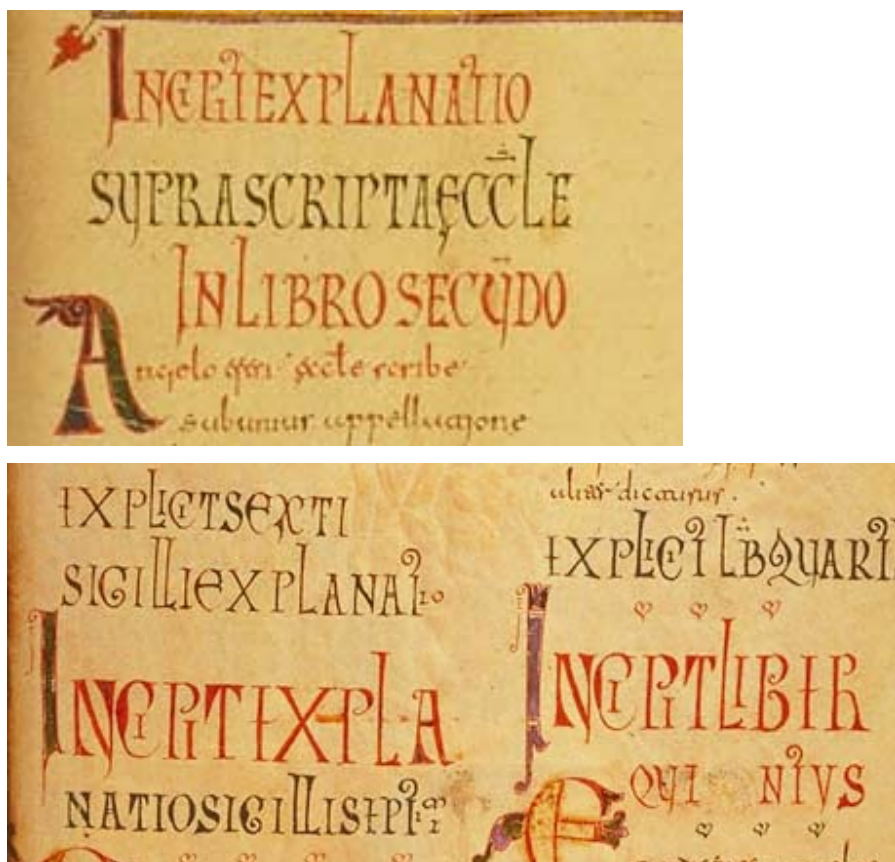 INCIPIT EXPLANATIO
SUPRASCRIPTAE ECCLE
IN LIBRO SECUDO
Angelo
subumur appellacione
EXPLICIT SEXTI
SIGILLI EXPLANATIO
INCIPIT EXPLA
NATIO SIGILLI SEPTI
dicaurur.
EXPLICIT LB QUARTI
INCIPIT LIBER
QUINTVS